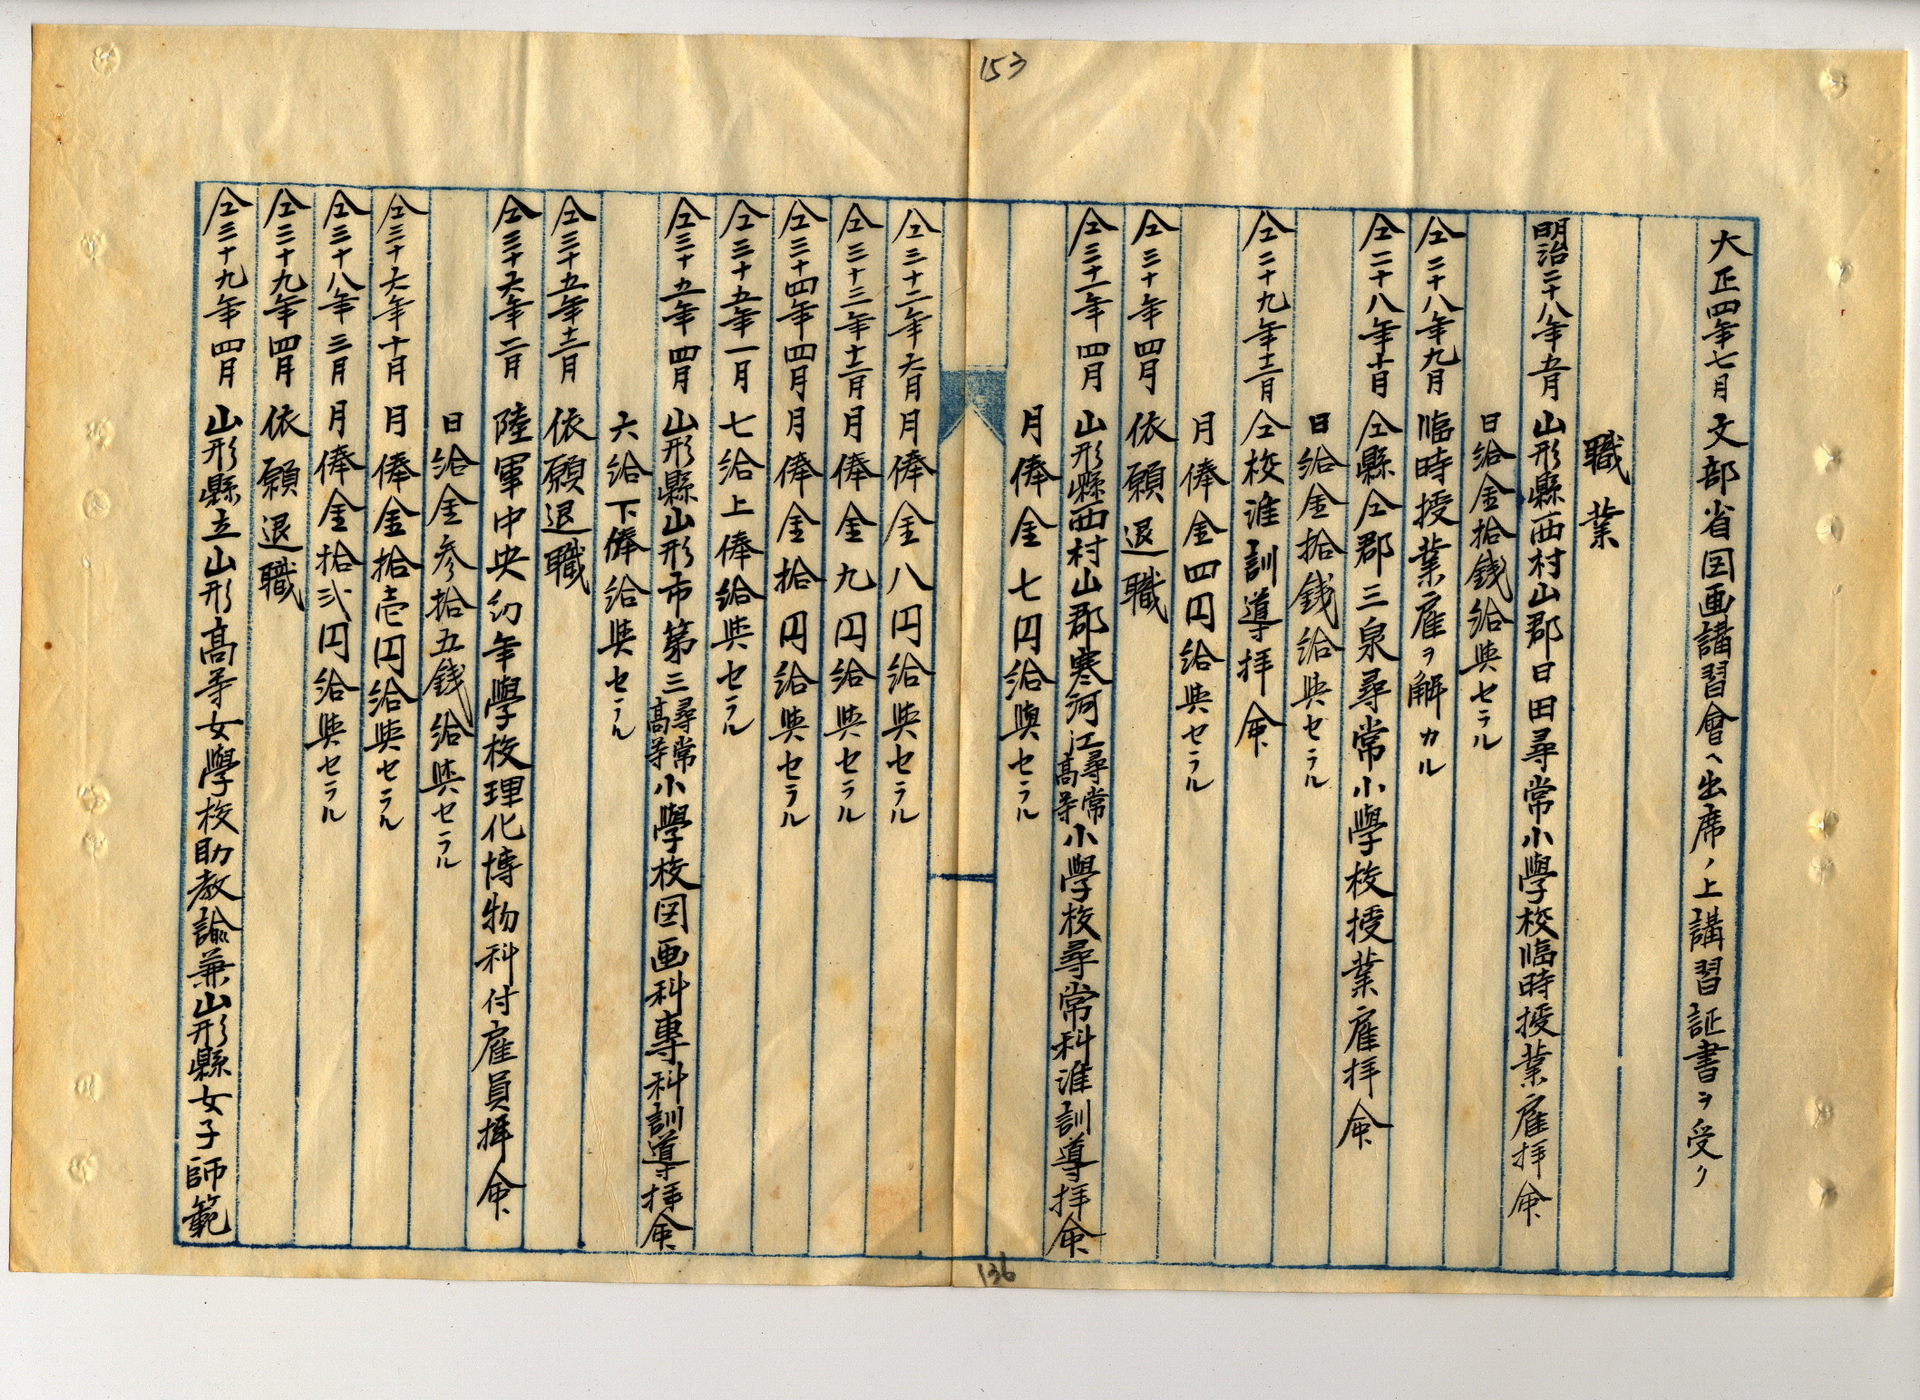 153
大正四年七月 文部省図画講習會ヘ出席ノ上講習証書ヲ受ク
職業
明治二十八年五月 山形縣西村山郡日田尋常小學校臨時授業雇拝命
日給金拾銭給與セラル
仝二十八年九月 臨時授業雇ヲ解カル
仝二十八年十月 仝縣仝郡三泉尋常小學校授業雇拝命
日給金拾銭給與セラル
仝二十九年十二月 仝校准訓導拝命
月俸金四円給與セラル
仝三十年四月 依願退職
仝三十一年四月 山形縣西村山郡寒河江尋常高等小學校尋常科准訓導拝命
月俸金七円給與セラル
仝三十二年六月 月俸金八円給與セラル
仝三十三年十二月 月俸金九円給與セラル
仝三十四年四月 月俸金拾円給與セラル
仝三十五年一月 七給上俸給與セラル
仝三十五年四月 山形縣山形市第三尋常高等小學校図画科専科訓導拝命
六給下俸給與セラル
仝三十五年十二月 依願退職
仝三十六年二月 陸軍中央幼年學校理化博物科付雇員拝命
日給金参拾五銭給與セラル
仝三十六年十月 月俸金拾壱円給與セラル
仝三十八年三月 月俸金拾弐円給與セラル
仝三十九年四月 依願退職
仝三十九年四月 山形縣立山形高等女學校助教諭兼山形縣女子師範
136